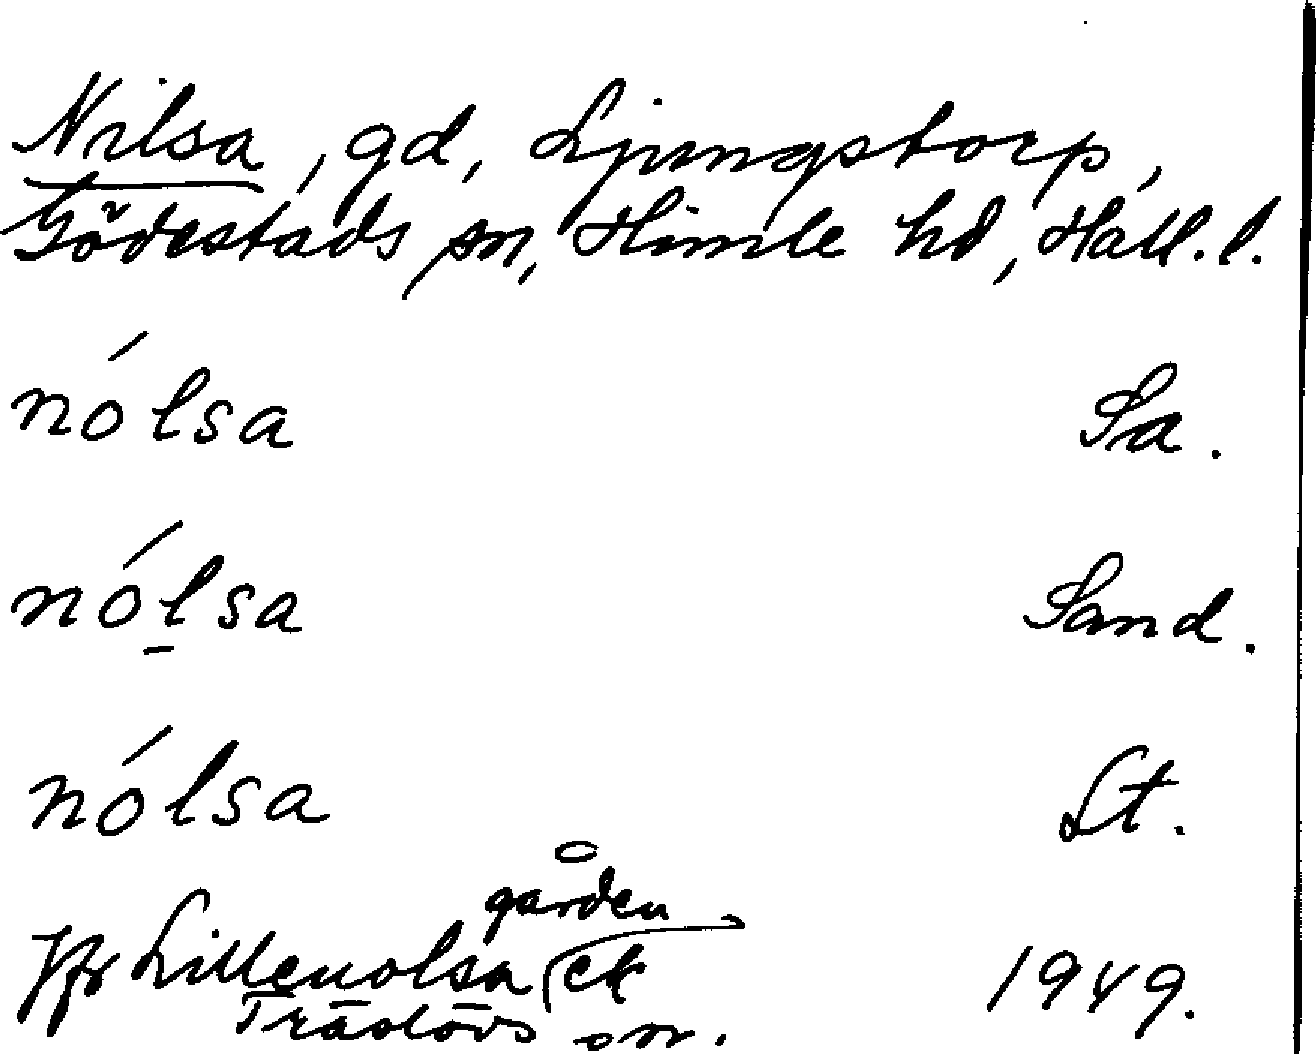 Nilsa, gd, Ljungstorp,
Gödestads sn, Himle hd, Hall. l.
nólsa Sa.
nólsa Sand.
nólsa St.
gården
Jfr Lillenolsa ek 1949.
Träslövs sn.